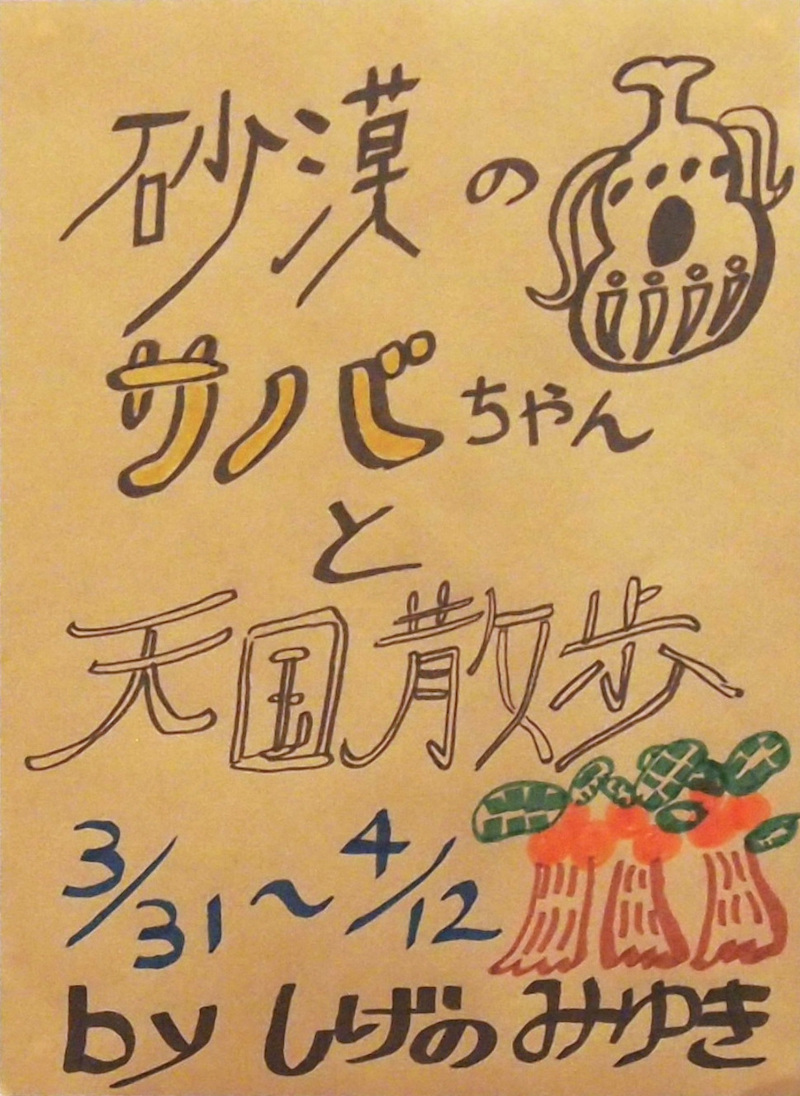 砂漠の
サバちゃん
と
天国散歩
3/31～4/12
by しげのみゆき